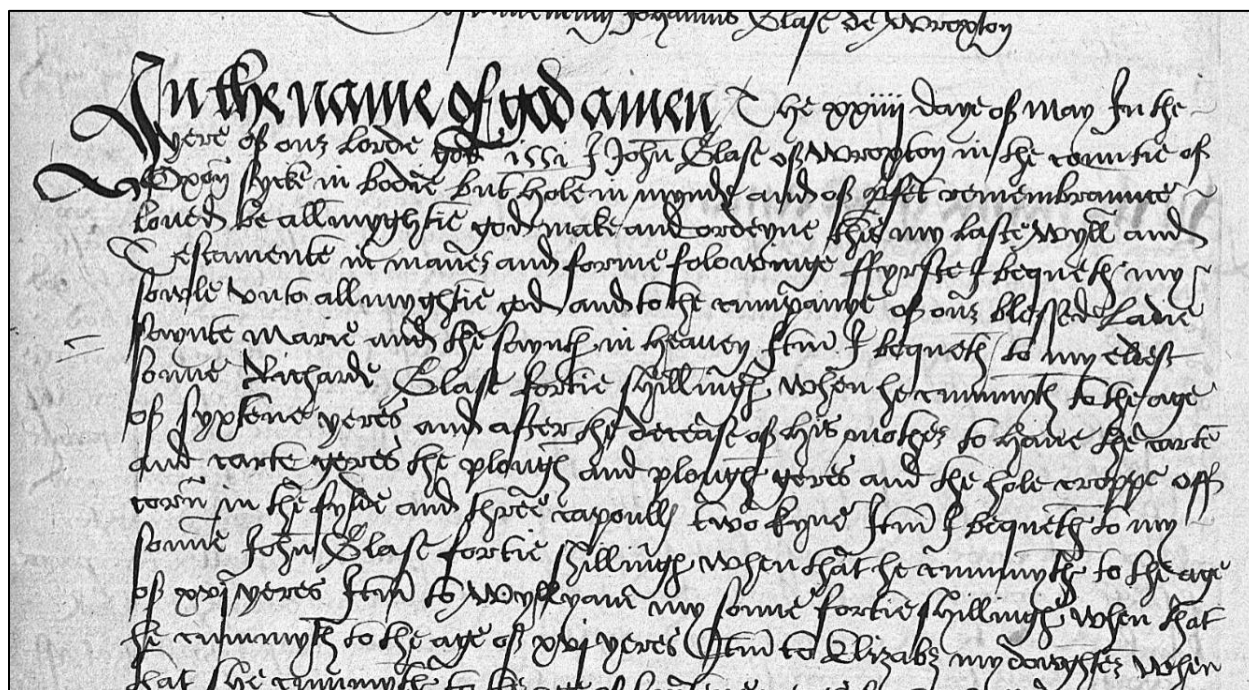 Testamentum Johannis Blase de Wropton
In the name of god amen The xxiiii daye of May In the
yere of our Lorde god 1551 I John Blase of Wropton in the countie of
Oxon sycke in bodie but hole in mynde and of pfect remembraunce
loued be allmyghtie god make and ordeyne this my laste wyll and
Testamente in maner and forme folowinge ffyrste I bequeth my
sowle vnto allmyghtie god and to the cumpanye of our blessed Ladie
saynte Marie and the saynts in heauen Itm I bequeth to my eldest
sonne Richarde Blase fortie shillings when he cummyth to the age
of syxtene yeres and after the decease of his mother to haue the carte
and carte geres the plough and plough geres and the hole croppe off
corn in the fylde and three capoulls two kyne Itm I bequeth to my
sonne John Blase fortie shillings when that he cummyth to the age
of xvi yeres Itm to Wyllyam my sonne fortie shillings when that
he cummyth to the age of xvi yeres Itm to Elizabe my dowghter when
that she cummyth to the age of